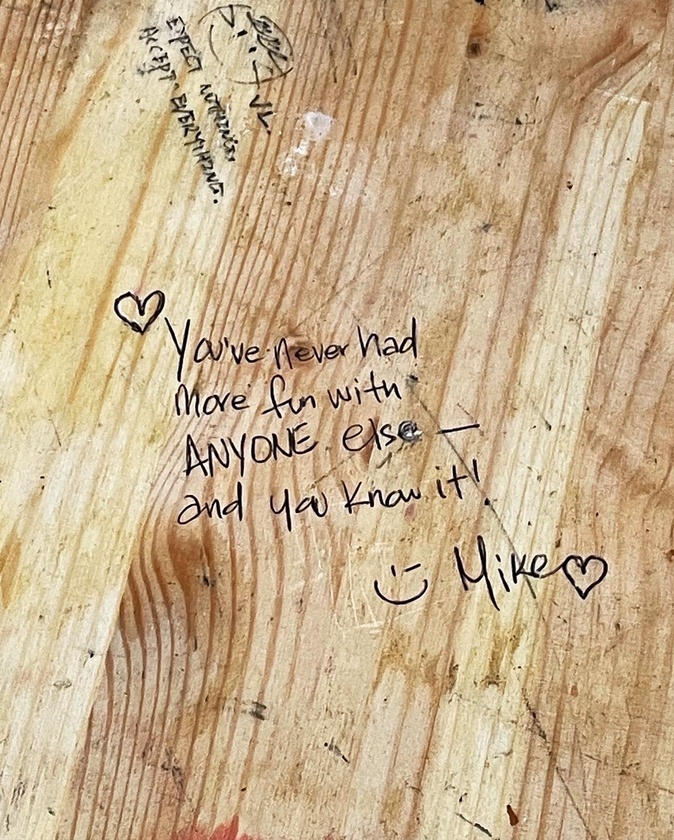 EXPECT NOTHING.
ACCEPT EVERYTHING.
You've never had
more fun with
ANYONE else —
and you know it!
Mike